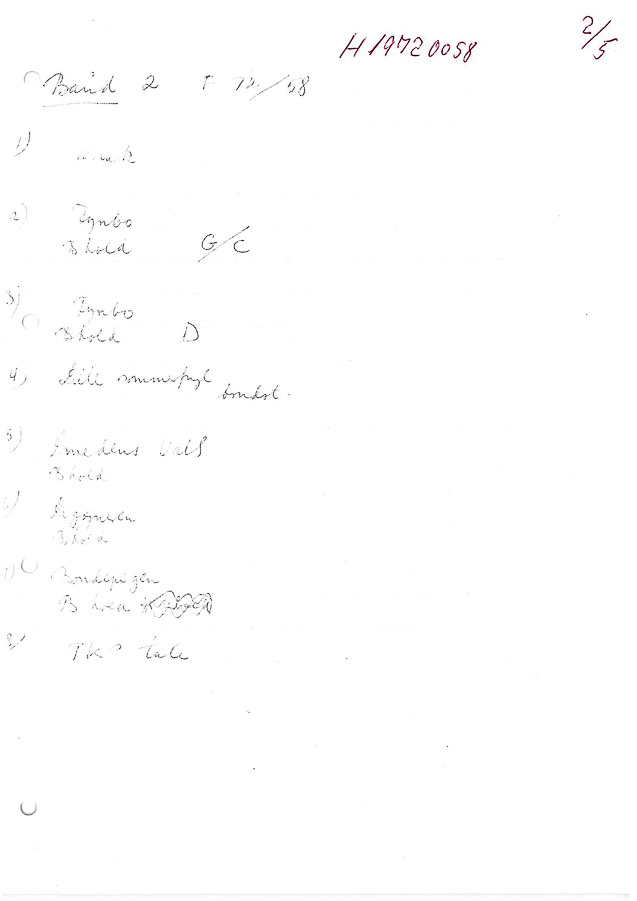 H19720058
2/5
Band 2 F 72/58
1)
2) Fynbo
B hold G/C
3) Fynbo
B hold D
4) Lille sommerfugl
5) Smedens Vals
B hold
B hold
7) Bondepigen
B hold
8) tale